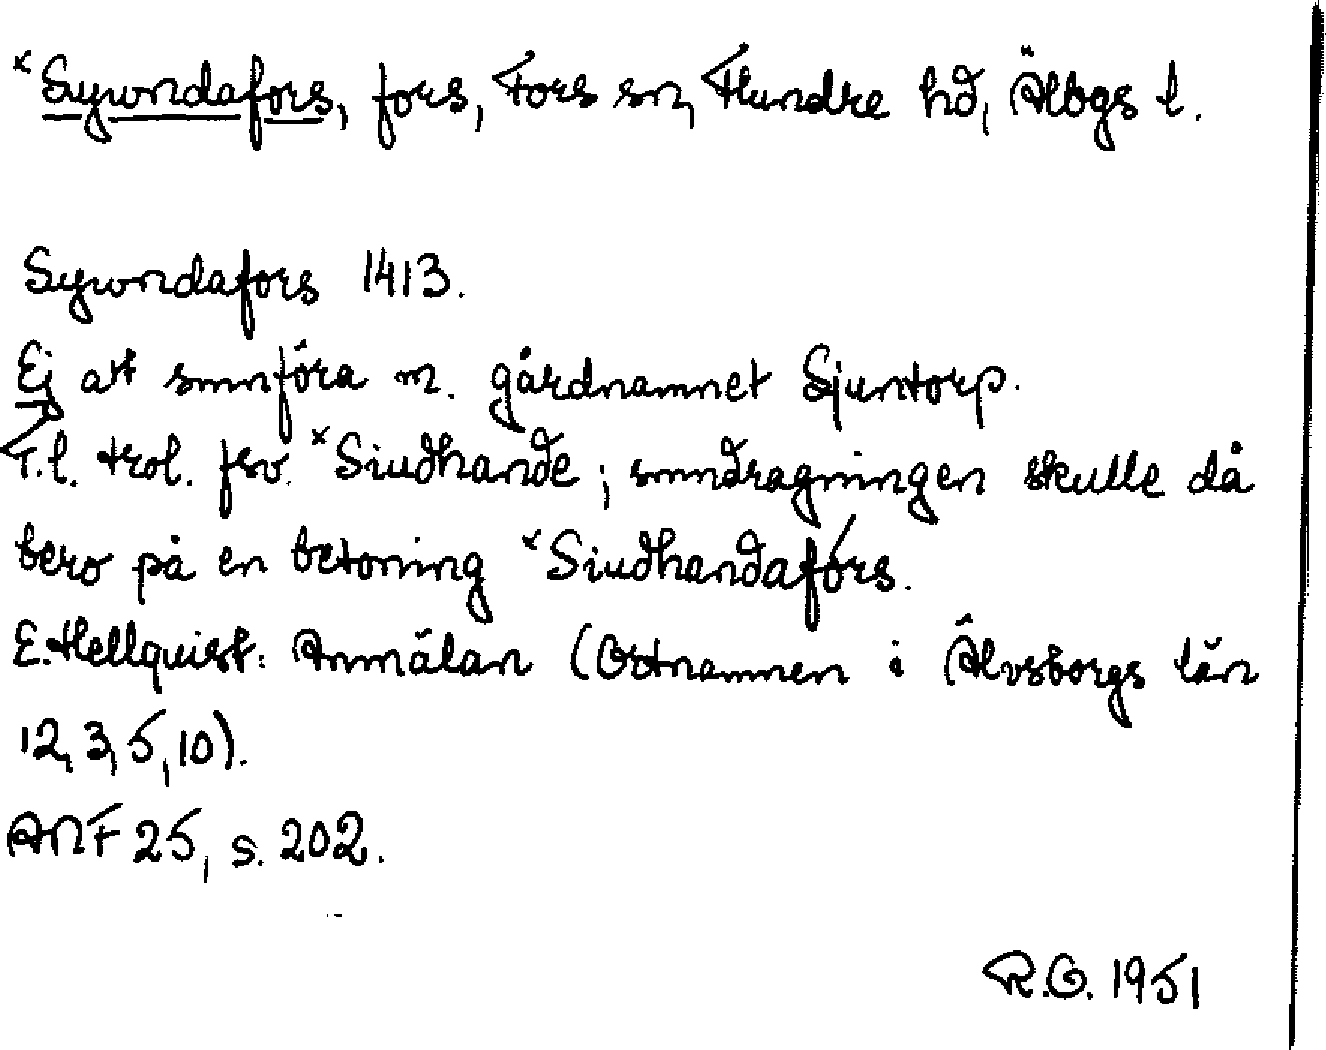 ×Sywndafors, fors, Fors sn, Flundre hd, Älbgs l.
Sywndafors 1413.
Ej att smnföra m. gårdnamnet Sjuntorp.
T.l. trol. fsv. ×Siudhande; smndragningen skulle då
bero på en betoning ×Siudhandafórs.
E. Hellquist: Anmälan (Ortnamnen i Älvsborgs län
12, 3, 5, 10).
ANF 25, s. 202.
R.O. 1951